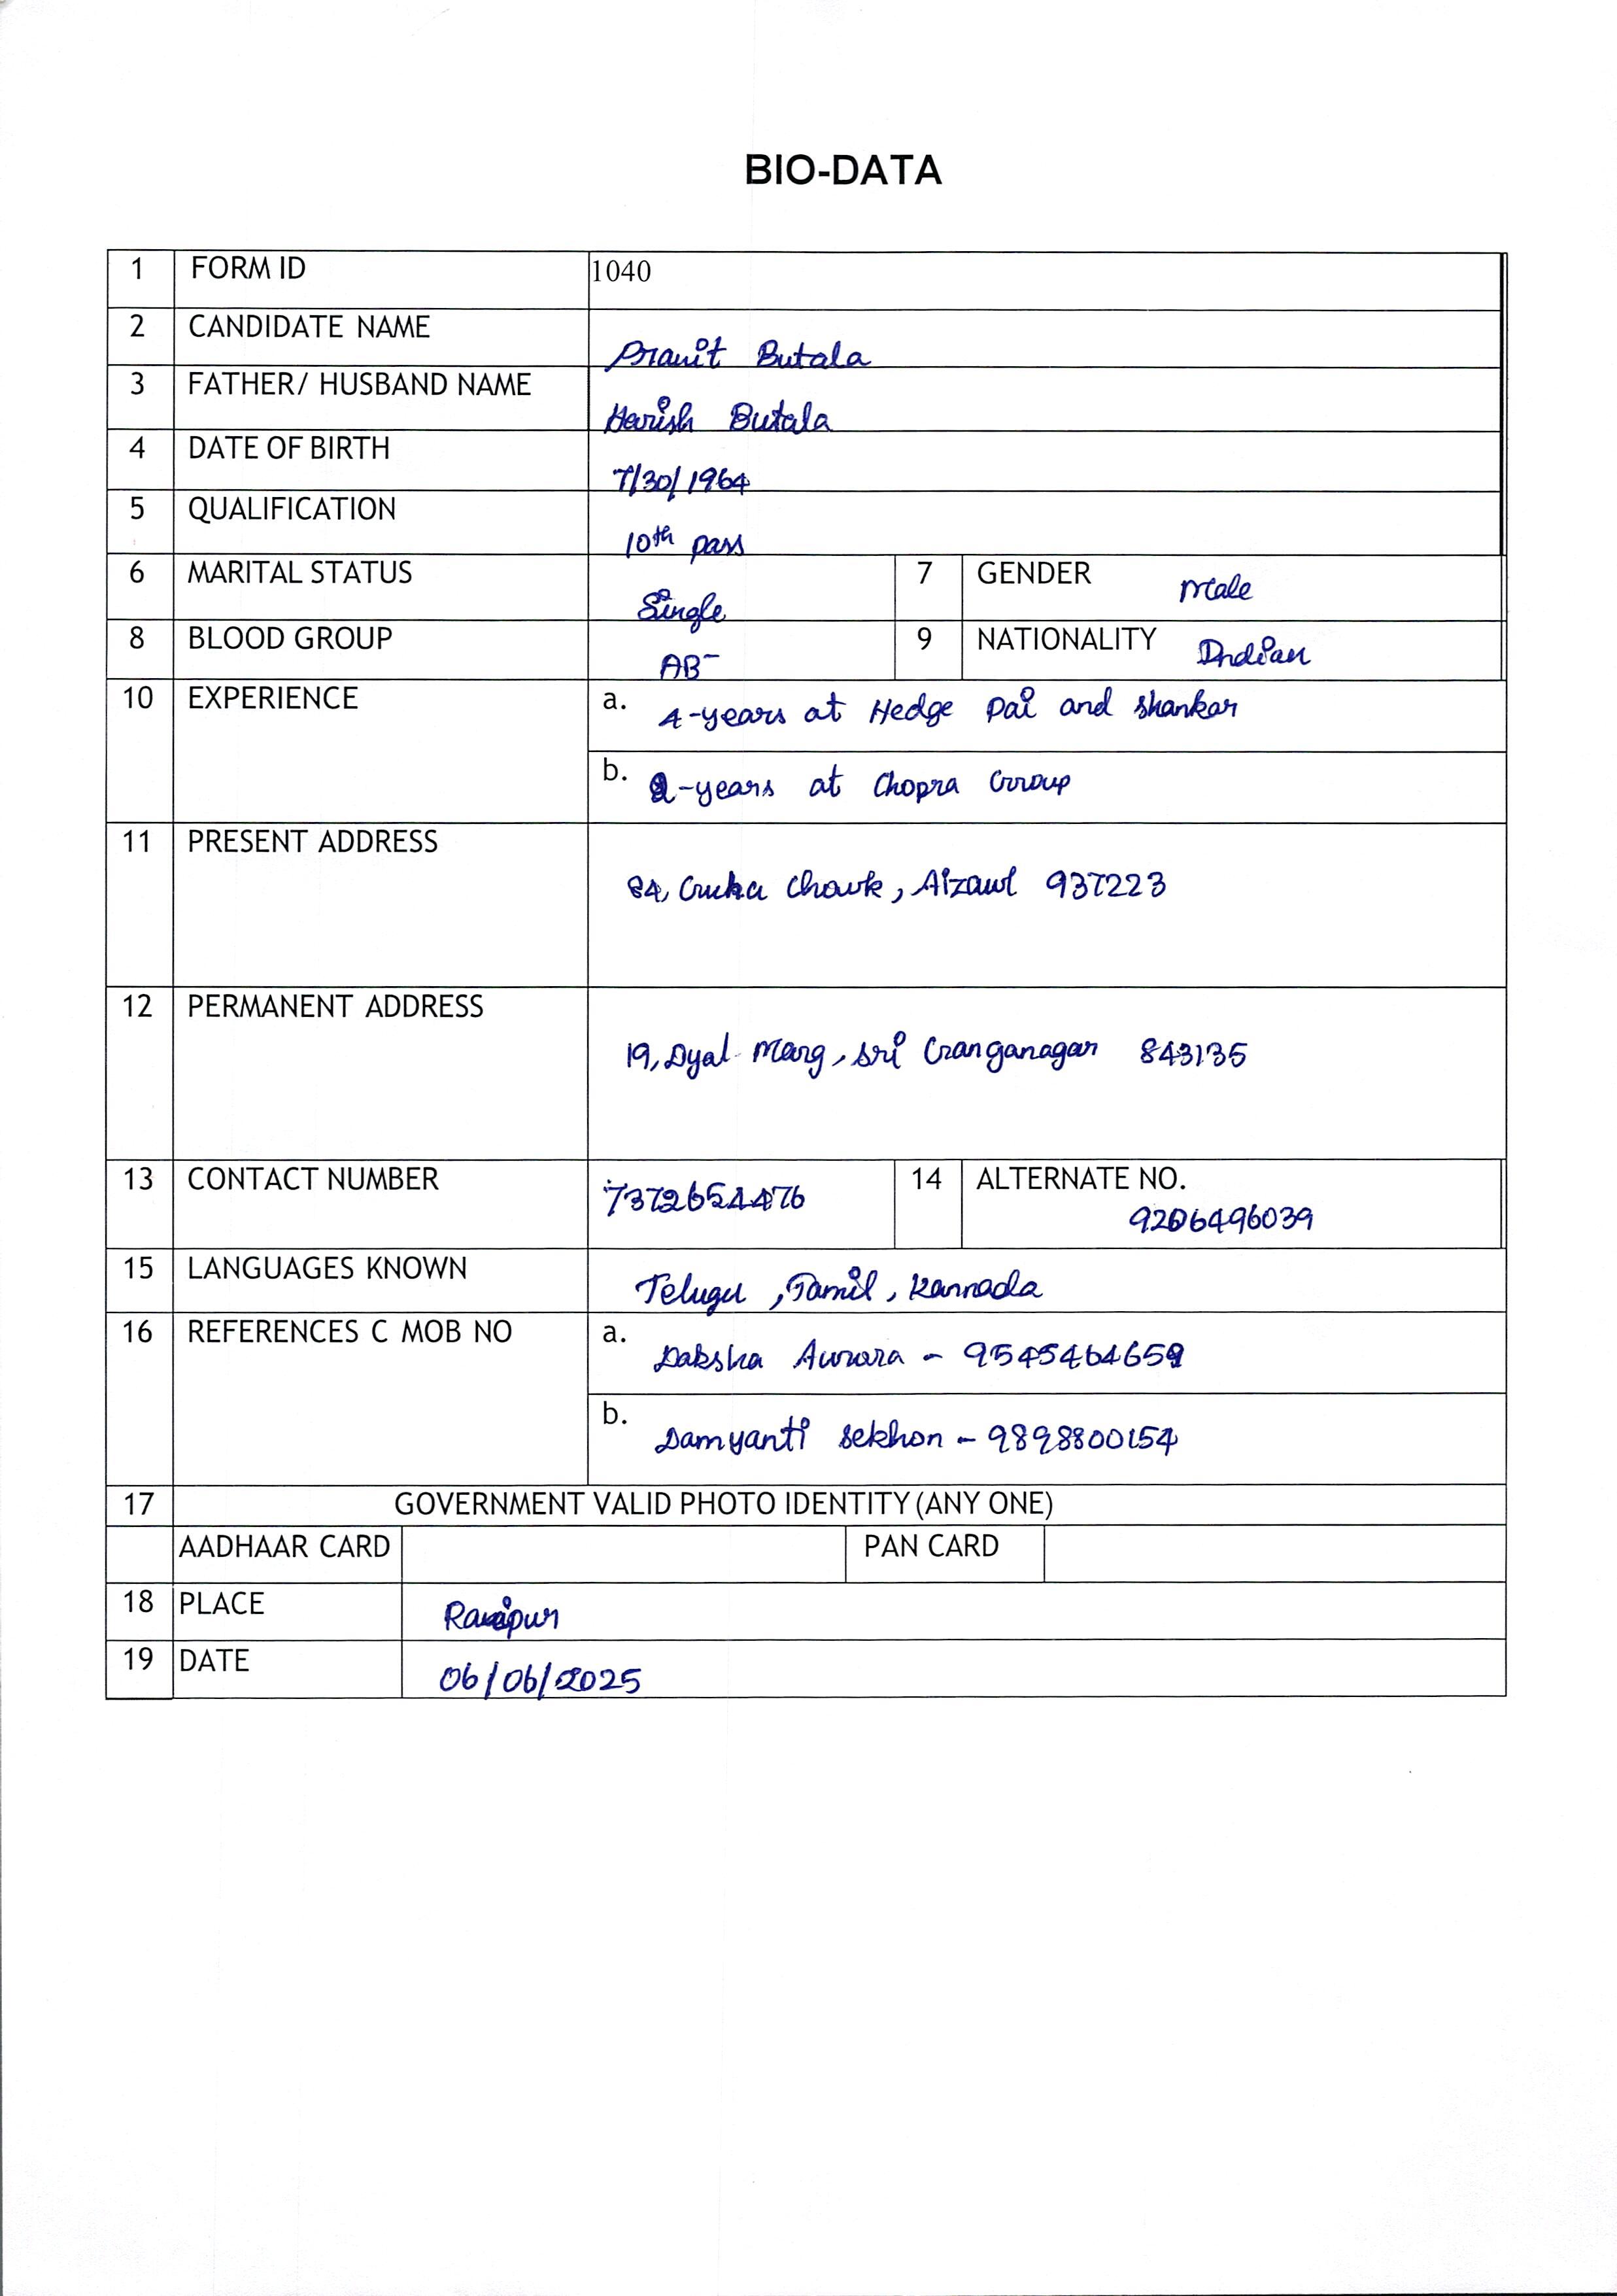 BIO-DATA
1 FORM ID 1040
2 CANDIDATE NAME Pranit Butala
3 FATHER/ HUSBAND NAME Harish Butala
4 DATE OF BIRTH 7/30/1964
5 QUALIFICATION 10th pass
6 MARITAL STATUS Single 7 GENDER Male
8 BLOOD GROUP AB- 9 NATIONALITY Indian
10 EXPERIENCE a. 4-years at Hedge Pai and Shankar
b. 2-years at Chopra Group
11 PRESENT ADDRESS
84, Chowk, Aizawl 937223
12 PERMANENT ADDRESS
19, Dyal Marg, Sri Ganganagar 843135
13 CONTACT NUMBER 7372654476 14 ALTERNATE NO.
9206496039
15 LANGUAGES KNOWN Telugu, Tamil, Kannada
16 REFERENCES C MOB NO a. Daksha Aurora - 9545464659
b. Damyanti Sekhon - 9898800154
17 GOVERNMENT VALID PHOTO IDENTITY (ANY ONE)
AADHAAR CARD PAN CARD
18 PLACE
19 DATE 06/06/2025